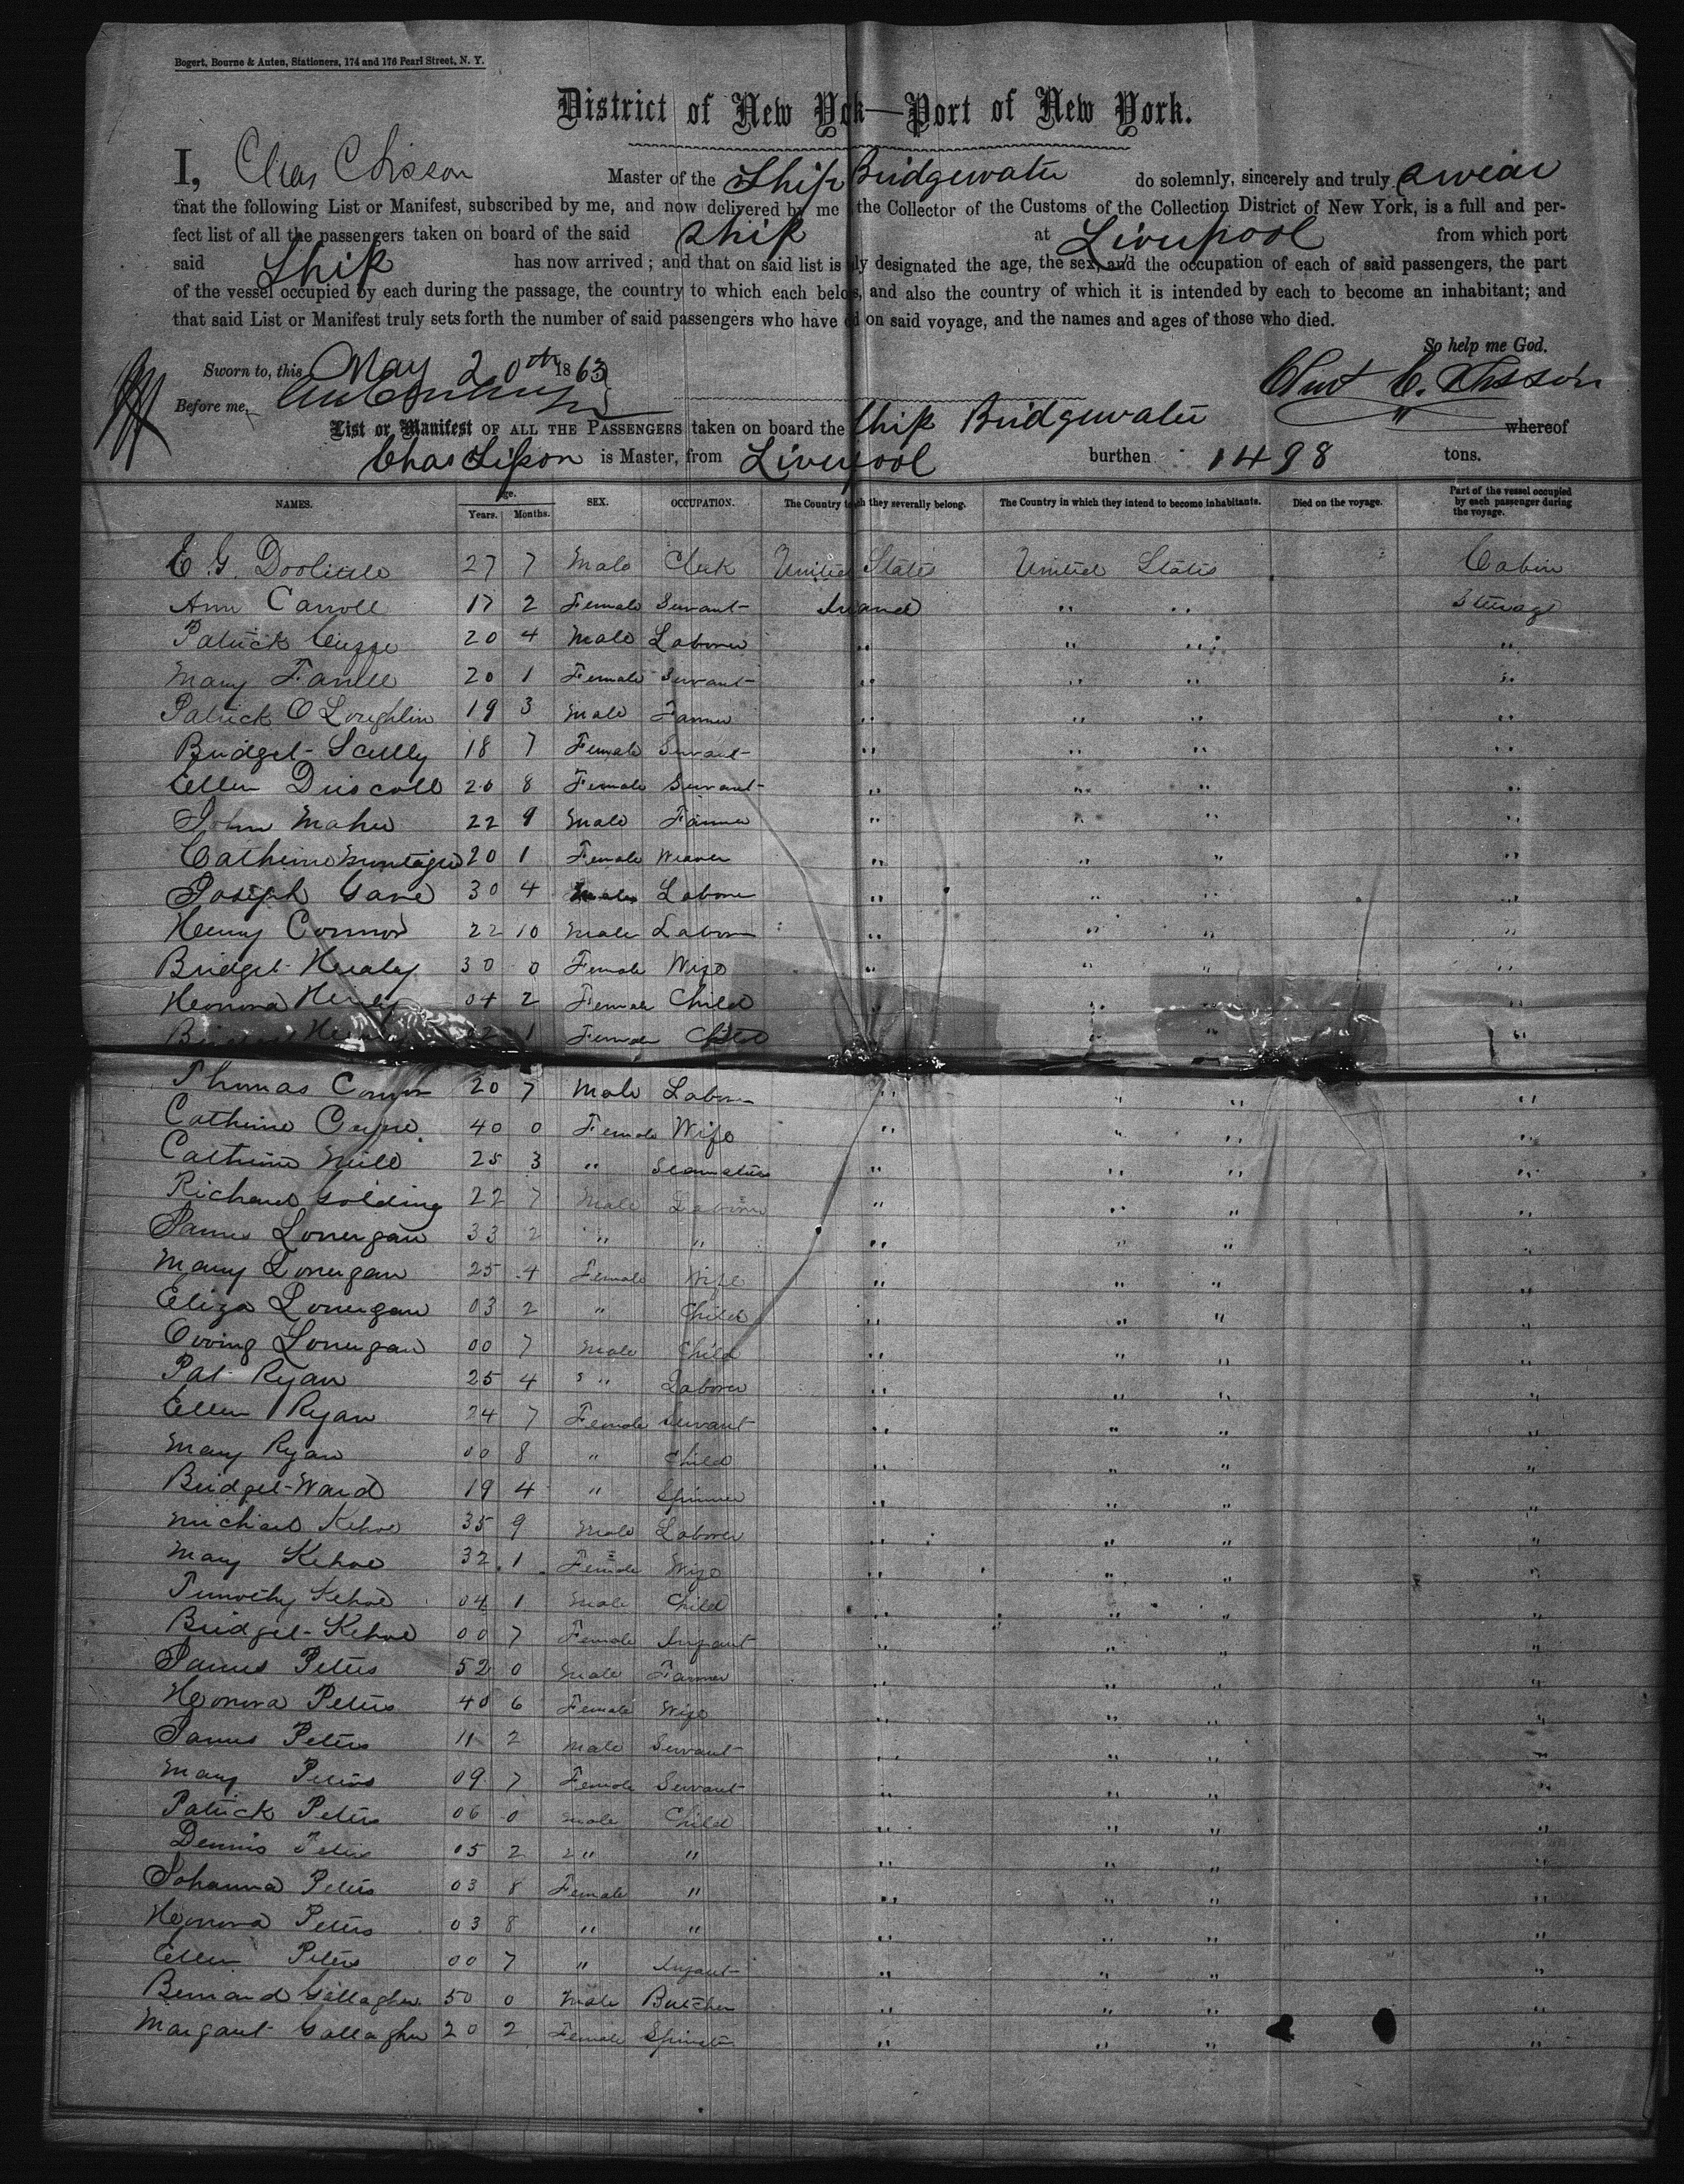 Bogert, Bourne & Auten, Stationers, 174 and 176 Pearl Street, N. Y.
District of New Yok—Port of New York.
I, Chas C Sisson Master of the Ship Bridgewater do solemnly, sincerely and truly swear
that the following List or Manifest, subscribed by me, and now delivered by me the Collector of the Customs of the Collection District of New York, is a full and per-
fect list of all the passengers taken on board of the said Ship at Liverpool from which port
said Ship has now arrived; and that on said list is ly designated the age, the sex, and the occupation of each of said passengers, the part
of the vessel occupied by each during the passage, the country to which each belos, and also the country of which it is intended by each to become an inhabitant; and
that said List or Manifest truly sets forth the number of said passengers who have d on said voyage, and the names and ages of those who died.
So help me God.
Sworn to, this May 20th 1863
Before me,
List or Manifest OF ALL THE PASSENGERS taken on board the Ship Bridgewater whereof
Chas Sisson is Master, from Liverpool burthen 1498 tons.
NAMES. Age. Years. Months. SEX. OCCUPATION. The Country to which they severally belong. The Country in which they intend to become inhabitants. Died on the voyage. Part of the vessel occupied by each passenger during the voyage.
E G. Doolittle 27 7 Male Clerk United States United States Cabin
Ann Carroll 17 2 Female Servant Ireland " " Steerage
Patrick 20 4 Male Laborer " " " "
Mary Farrell 20 1 Female Servant " " " "
Patrick O Loughlin 19 3 Male Farmer " " " "
Bridget Scully 18 7 Female Servant " " " "
Ellen Driscoll 20 8 Female Servant " " " "
John Maher 22 9 Male Farmer " " " "
Catherine Montague 20 1 Female Weaver " " " "
Joseph Gane 30 4 Male Laborer " " " "
Henry Connor 22 10 Male Laborer " " " "
Bridget Healey 30 0 Female Wife " " " "
Heonora Healey 04 2 Female Child " " " "
1 Female Child " " "
Thomas Connor 20 7 Male Laborer " " " "
Catherine 40 0 Female Wife " " " "
Catherine Neill 25 3 " Seamstress " " " "
Richard Golding 22 7 Male Laborer " " " "
James Lonergan 33 2 " " " " " "
Mary Lonergan 25 4 Female Wife " " " "
Eliza Lonergan 03 2 " Child " " " "
Lonergan 00 7 Male Child " " " "
Pat Ryan 25 4 " Laborer " " " "
Ellen Ryan 24 7 Female Servant " " " "
Mary Ryan 00 8 " Child " " " "
Bridget Ward 19 4 " Spinner " " " "
Michael Kehoe 35 9 Male Laborer " " " "
Mary Kehoe 32 1 Female Wife " " " "
Timothy Kehoe 04 1 Male Child " " " "
Bridget Kehoe 00 7 Female Infant " " " "
James Peters 52 0 Male Farmer " " " "
Heonora Peters 40 6 Female Wife " " " "
James Peters 11 2 Male Servant " " " "
Mary Peters 09 7 Female Servant " " " "
Patrick Peters 06 0 Male Child " " " "
Dennis Peters 05 2 " " " " " "
Johanna Peters 03 8 Female " " " " "
Heonora Peters 03 8 " " " " " "
Ellen Peters 00 7 " Infant " " " "
Bernard Gallagher 50 0 Male Butcher " " " "
Margaret Gallagher 20 2 Female Spinster " " " "